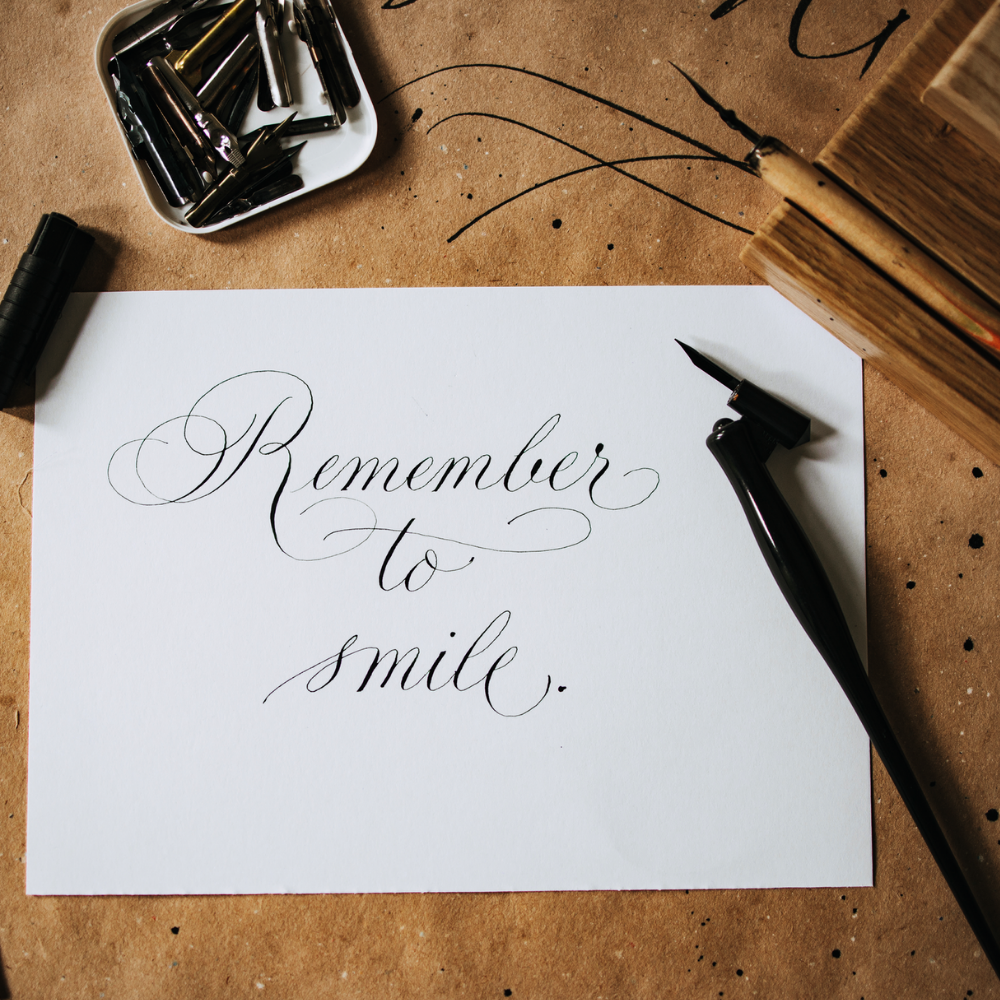 Remember
to
smile.